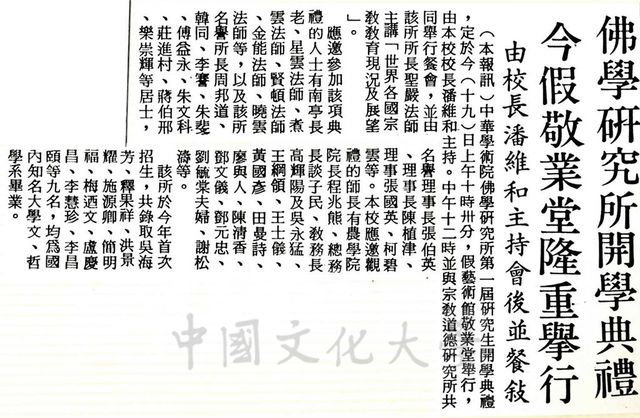 佛學研究所開學典禮
今假敬業堂隆重舉行
由校長潘維和主持會後並餐敍
（本報訊）中華學術院佛學研究所第一屆研究生開學典禮
，定於今（十九）日上午十時卅分，假藝術館敬業堂舉行，
由本校校長潘維和主持。中午十二時並與宗教道德研究所共
同舉行餐會，並由
該所所長聖嚴法師
主講「世界各國宗
教教育現況及展望
」。
應邀參加該項典
禮的人士有南亭長
老、星雲法師、煮
雲法師、賢頓法師
、金能法師、曉雲
法師等，以及該所
名譽所長周邦道、
韓同、李謇、朱斐
、傅益永、朱文科
、莊進村、蔣伯邢
、樂崇輝等居士，
名譽理事長張伯英
、理事長陳植津、
理事張國英、柯碧
雲等。本校應邀觀
禮的師長有農學院
院長程兆熊、總務
長談子民、教務長
高輝陽及吳永猛、
王綱領、王士儀、
黃國彥、田曼詩、
廖與人、陳清香、
鄧文儀、鄧元忠、
劉敏棠夫婦、謝松
濤等。
該所於今年首次
招生，共錄取吳海
芳、釋果祥、洪景
耀、施源卿、簡明
福、梅迺文、盧慶
昌、李慧珍、李昌
頤等九名，均為國
內知名大學文、哲
學系畢業。
中國文化大